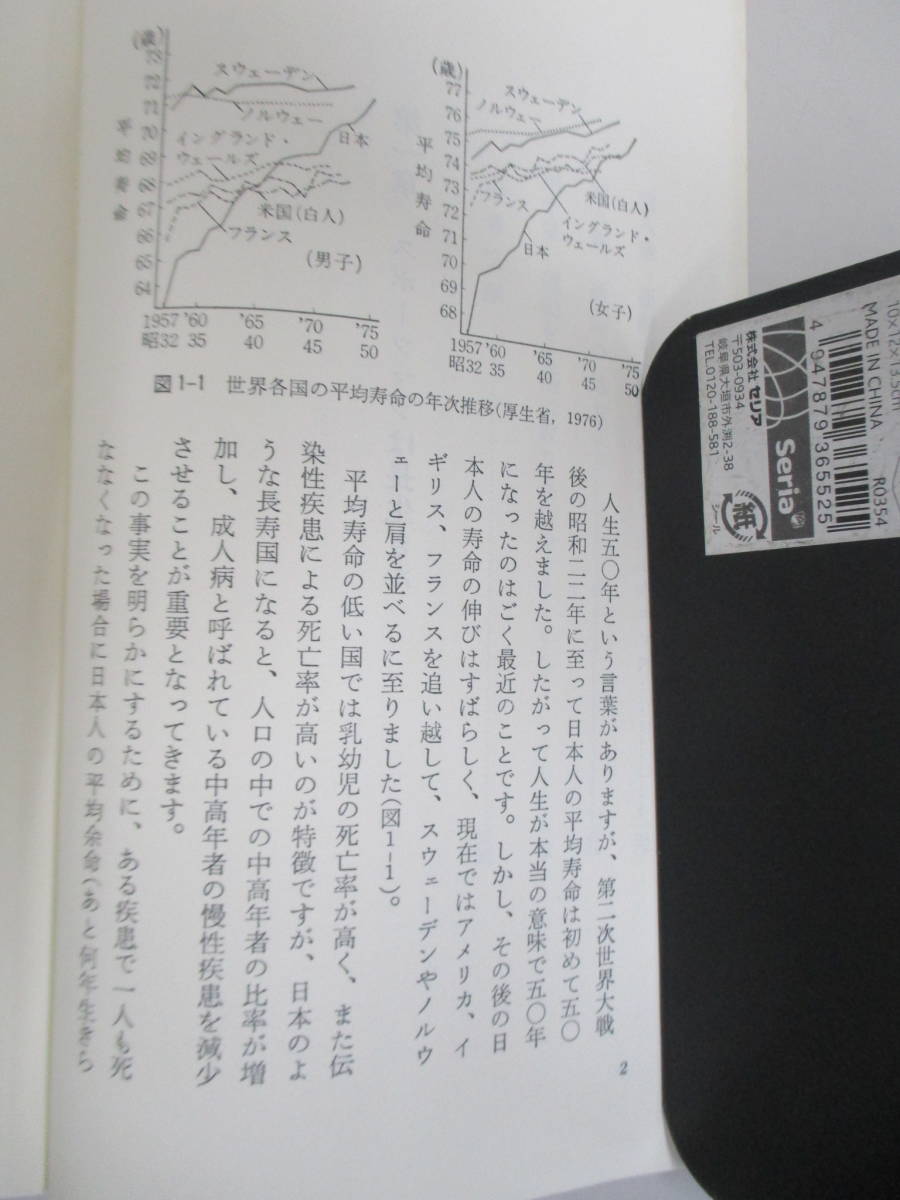 (歳)
73
72
71
70
69
68
67
66
65
64
平均寿命
スウェーデン
ノルウェー
イングランド・
ウェールズ
日本
米国(白人)
フランス
(男子)
1957 '60 '65 '70 '75
昭32 35 40 45 50
(歳)
77
76
75
74
73
72
71
70
69
68
平均寿命
スウェーデン
ノルウェー
フランス
米国(白人)
イングランド・
ウェールズ
日本
(女子)
1957 '60 '65 '70 '75
昭32 35 40 45 50
図1-1 世界各国の平均寿命の年次推移(厚生省, 1976)
人生五〇年という言葉がありますが、第二次世界大戦
後の昭和二二年に至って日本人の平均寿命は初めて五〇
年を越えました。したがって人生が本当の意味で五〇年
になったのはごく最近のことです。しかし、その後の日
本人の寿命の伸びはすばらしく、現在ではアメリカ、イ
ギリス、フランスを追い越して、スウェーデンやノルウ
ェーと肩を並べるに至りました(図1-1)。
平均寿命の低い国では乳幼児の死亡率が高く、また伝
染性疾患による死亡率が高いのが特徴ですが、日本のよ
うな長寿国になると、人口の中での中高年者の比率が増
加し、成人病と呼ばれている中高年者の慢性疾患を減少
させることが重要となってきます。
この事実を明らかにするために、ある疾患で一人も死
ななくなった場合に日本人の平均余命(あと何年生きら
2
10×12×13.5cm
MADE IN CHINA
R0354
4 947879 365525
Seria
株式会社 セリア
〒503-0934
岐阜県大垣市外渕2-38
TEL.0120-188-581
紙
シール